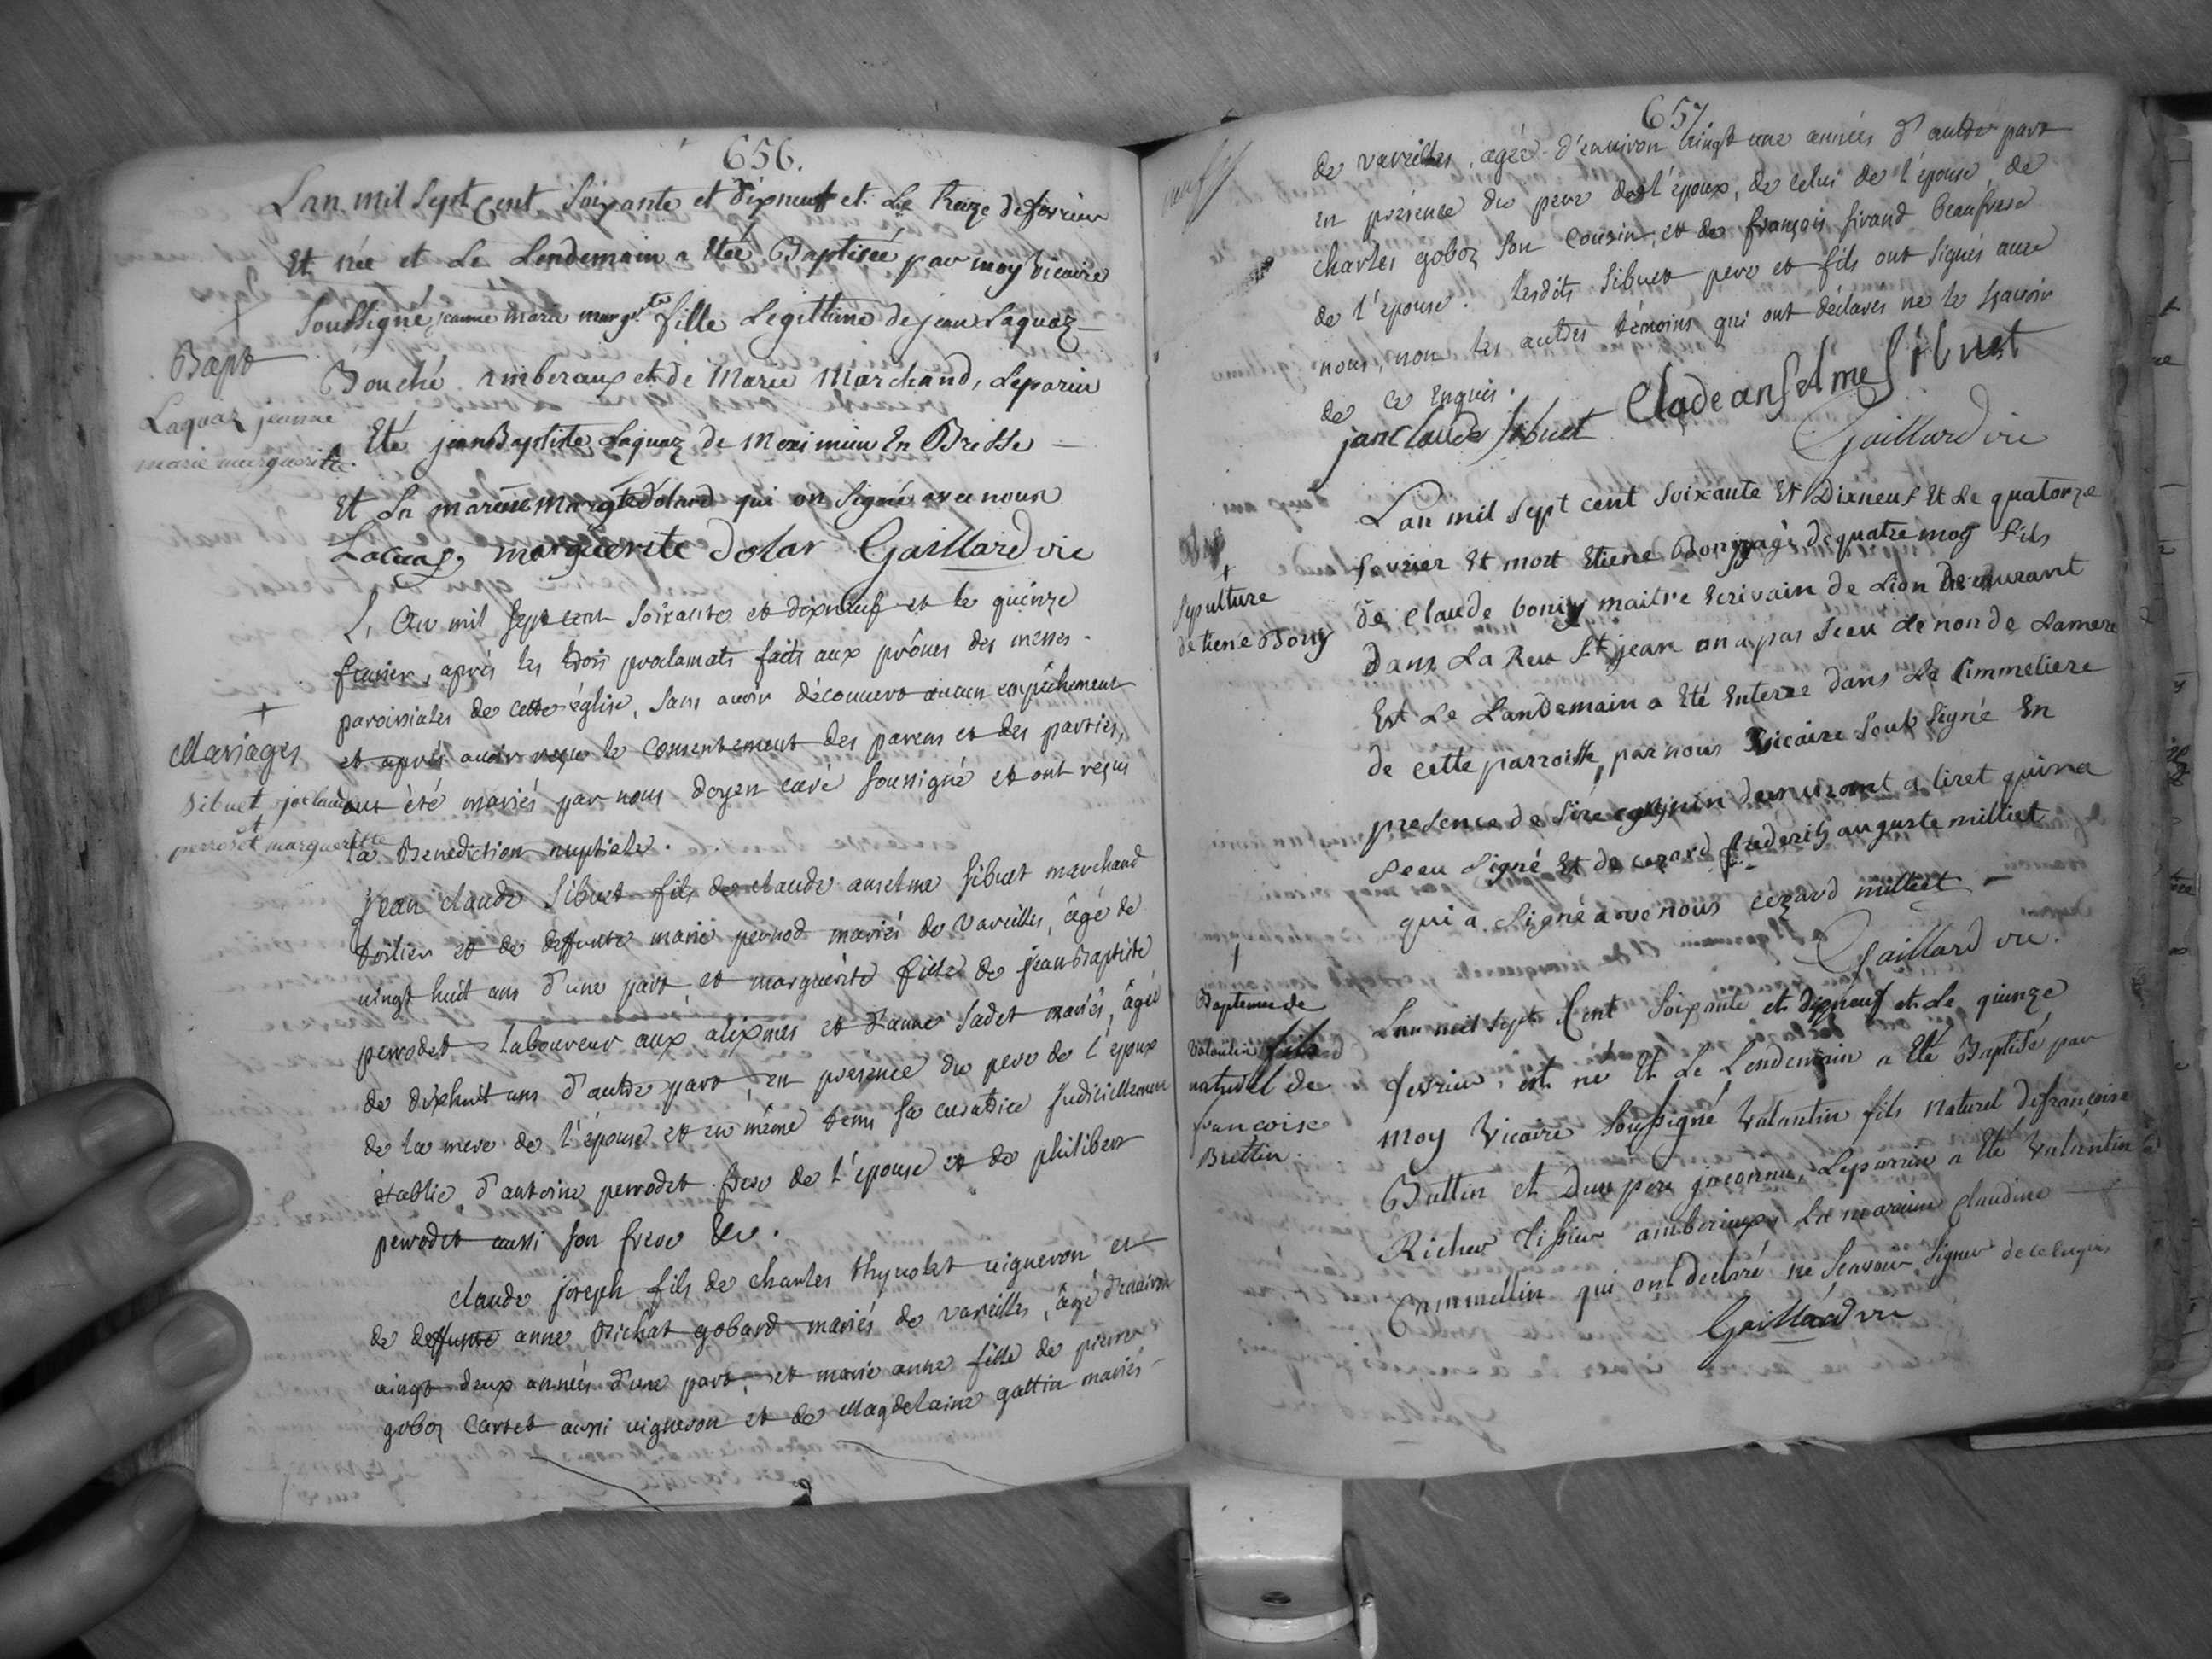 656.
Lan mil sept Cent soixante et dixneuf et Le treize defevrier
Et née et Le Lendemain a Eteé Baptiseé par moy Vicaire
soussigné, jeanne marie marg.te fille Legittime de jean Laquaz
Bapt
Bouché amberaux et de Marie Marchand, Leparin
Laquaz jeanne
marie marguerite.
Eté jeanBaptiste Laquaz de Meximieu En Bresse
Et La mareine Margte dolard qui on signé avec nous
Lacuaz, marguerite dolar Gaillard vic
L'An mil sept cent soixante et dixneuf et le quinze
fevrier, aprés les trois proclamats faits aux prônes des messes
paroissiales de cette église, sans avoir découvert aucun empêchement
Mariages
et aprés avoir reçu le Consentement des parens et des parties,
Sibuet
ont été mariés par nous doyen curé soussigné et ont reçus
et
perrodet marguerite
la Benediction nuptiale.
Jean claude Sibuet fils de claude anselme Sibuet marchand
toilier et de deffunte marie pernod mariés de Vareilles, âgé de
vingt huit ans d'une part, et marguérite fille de jean Baptiste
perrodet laboureur aux alixmes et d'anne Sadet mariés, âgée
de dixhuit ans d'autre part, en présence du pere de l'époux
de la mere de l'épouse et en même tems sa curatrice judiciellement
établie, d'antoine perrodet frere de l'épouse et de philibert
perrodet aussi son frere &c.
claude joseph fils de charles thynolet vigneron et
de deffunte anne Richat gobard mariés de vareilles, âgé d'environ
vingt deux années d'une part, et marie anne fille de pierre
goboz Carret aussi vigneron et de Magdelaine gattin mariés
657.
de vareilles, agée d'environ vingt une années d'autre part
en présence du pere de l'époux, de celui de l'épouse, de
charles goboz son Cousin, et de françois sirand beaufrere
de l'épouse. lesdits Sibuet pere et fils ont signés avec
nous, non les autres témoins qui ont déclarés ne le sçavoir
de ce Enquis.
jean Claude Sibuet Clade anselme Sibuet
Gaillard vic
Lan mil sept cent soixante Et Dixneuf Et Le quatorze
fevrier Et mort Etiene Bony agé de quatre moy fils
Sepulture
detiene Bony
de claude bony maitre Ecrivain de Lion Demeurant
Dans La Reu St jean on a pas sceu Le non de Lamere
Est Le Landemain a Eté Enterre dans Le Cimmetiere
de cette parroisse, par nous Vicaire Soub Signé En
presence de demeurant a liret quina
sceu Signé Et de cezard frederih auguste milliet
qui a Signé avenous cezard milliet
Gaillard vic.
Bapteme de
Valantin fils
naturel de
francoise
Buttin.
Lan mil sept Cent soixante et dixneuf et Le quinze
fevrier, est né Et Le Lendemain a Eté Baptisé par
moy Vicaire Soussigné Valantin fils Naturel defrançoise
Buttin et Dun pere jnconnu, Leparrin a Eté Valantin
Richer Tissieur amberieux La marrine Claudine
Cammellin qui ont declaré ne scavoir signer de ce Enquis
Gaillard vic